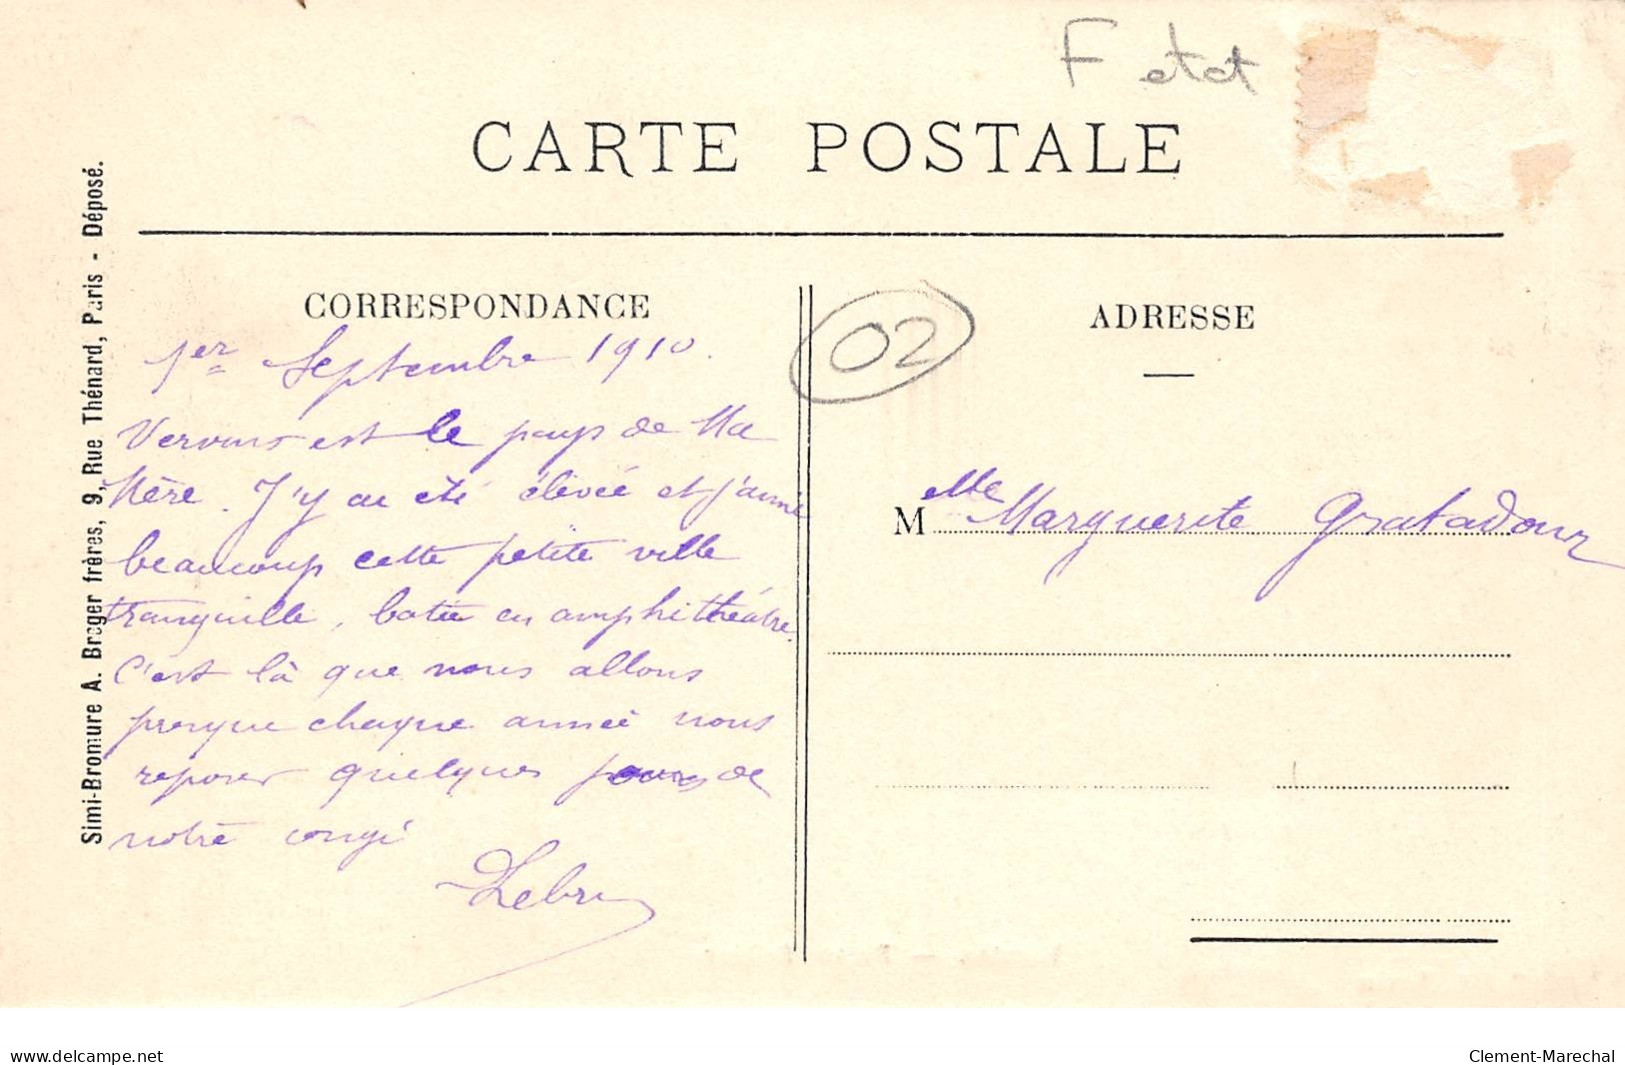 F etat
CARTE POSTALE
Simi-Bromure A. Breger frères, 9, Rue Thénard, Paris - Déposé.
CORRESPONDANCE
1er Septembre 1910.
Vervins est le pays de Ma
Mère. J'y ai été élevée et j'aime
beaucoup cette petite ville
tranquille, batie en amphithéâtre.
C'est là que nous allons
presque chaque année nous
reposer quelques jours de
notre congé
Lebru
02
ADRESSE
Melle Marguerite Gratadour
www.delcampe.net
Clement-Marechal